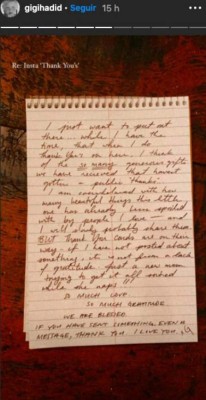 gigihadid • Seguir 15 h
Re: Insta 'Thank You's'
I just want to put out
there while I have the
time, that when I do
thank you's on here, I think
of the so many generous gifts
we have received that haven't
gotten a public 'thanks'.
I am overwhelmed with how
many beautiful things this little
one has already been spoiled
with by people I love and
I will slowly probably share them.
BUT thank you cards are on their
way & if I have not posted about
something it is not from a lack
of gratitude. Just a new mom
trying to get it all sorted
while she naps !!!
SO MUCH LOVE
SO MUCH GRATITUDE
WE ARE BLESSED.
IF YOU HAVE SENT SOMETHING, EVEN A
MESSAGE, THANK YOU. I LOVE YOU.